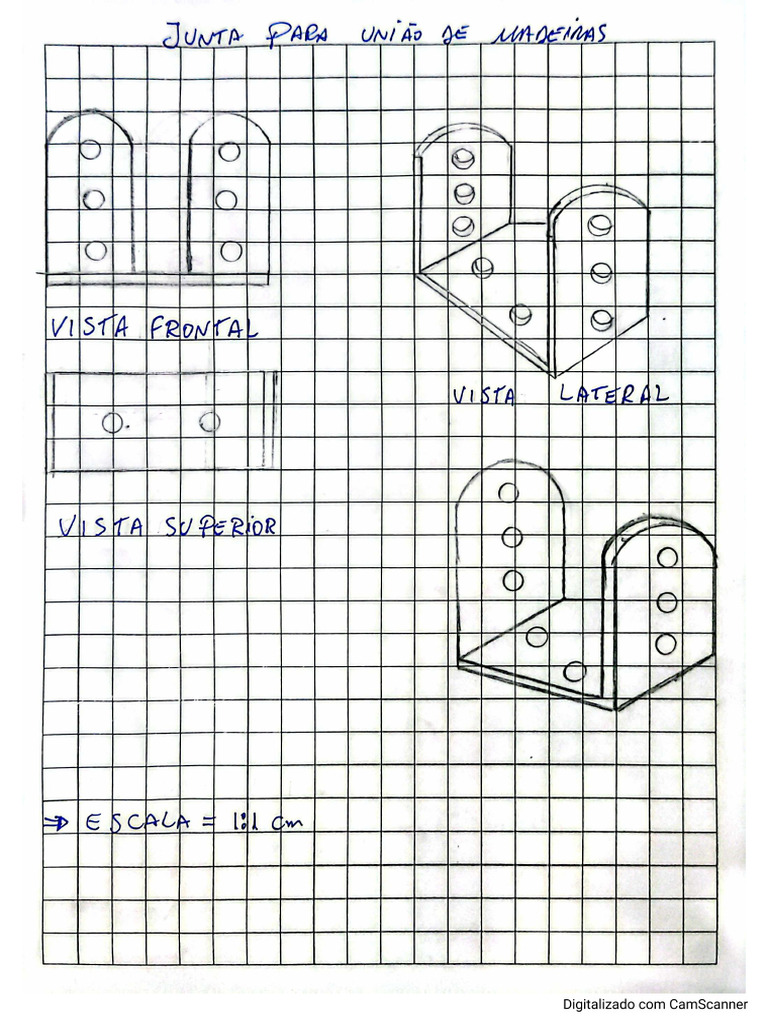 JUNTA PARA UNIÃO DE MADEIRAS
VISTA FRONTAL
VISTA LATERAL
VISTA SUPERIOR
⇒ ESCALA = 1:1 cm
Digitalizado com CamScanner